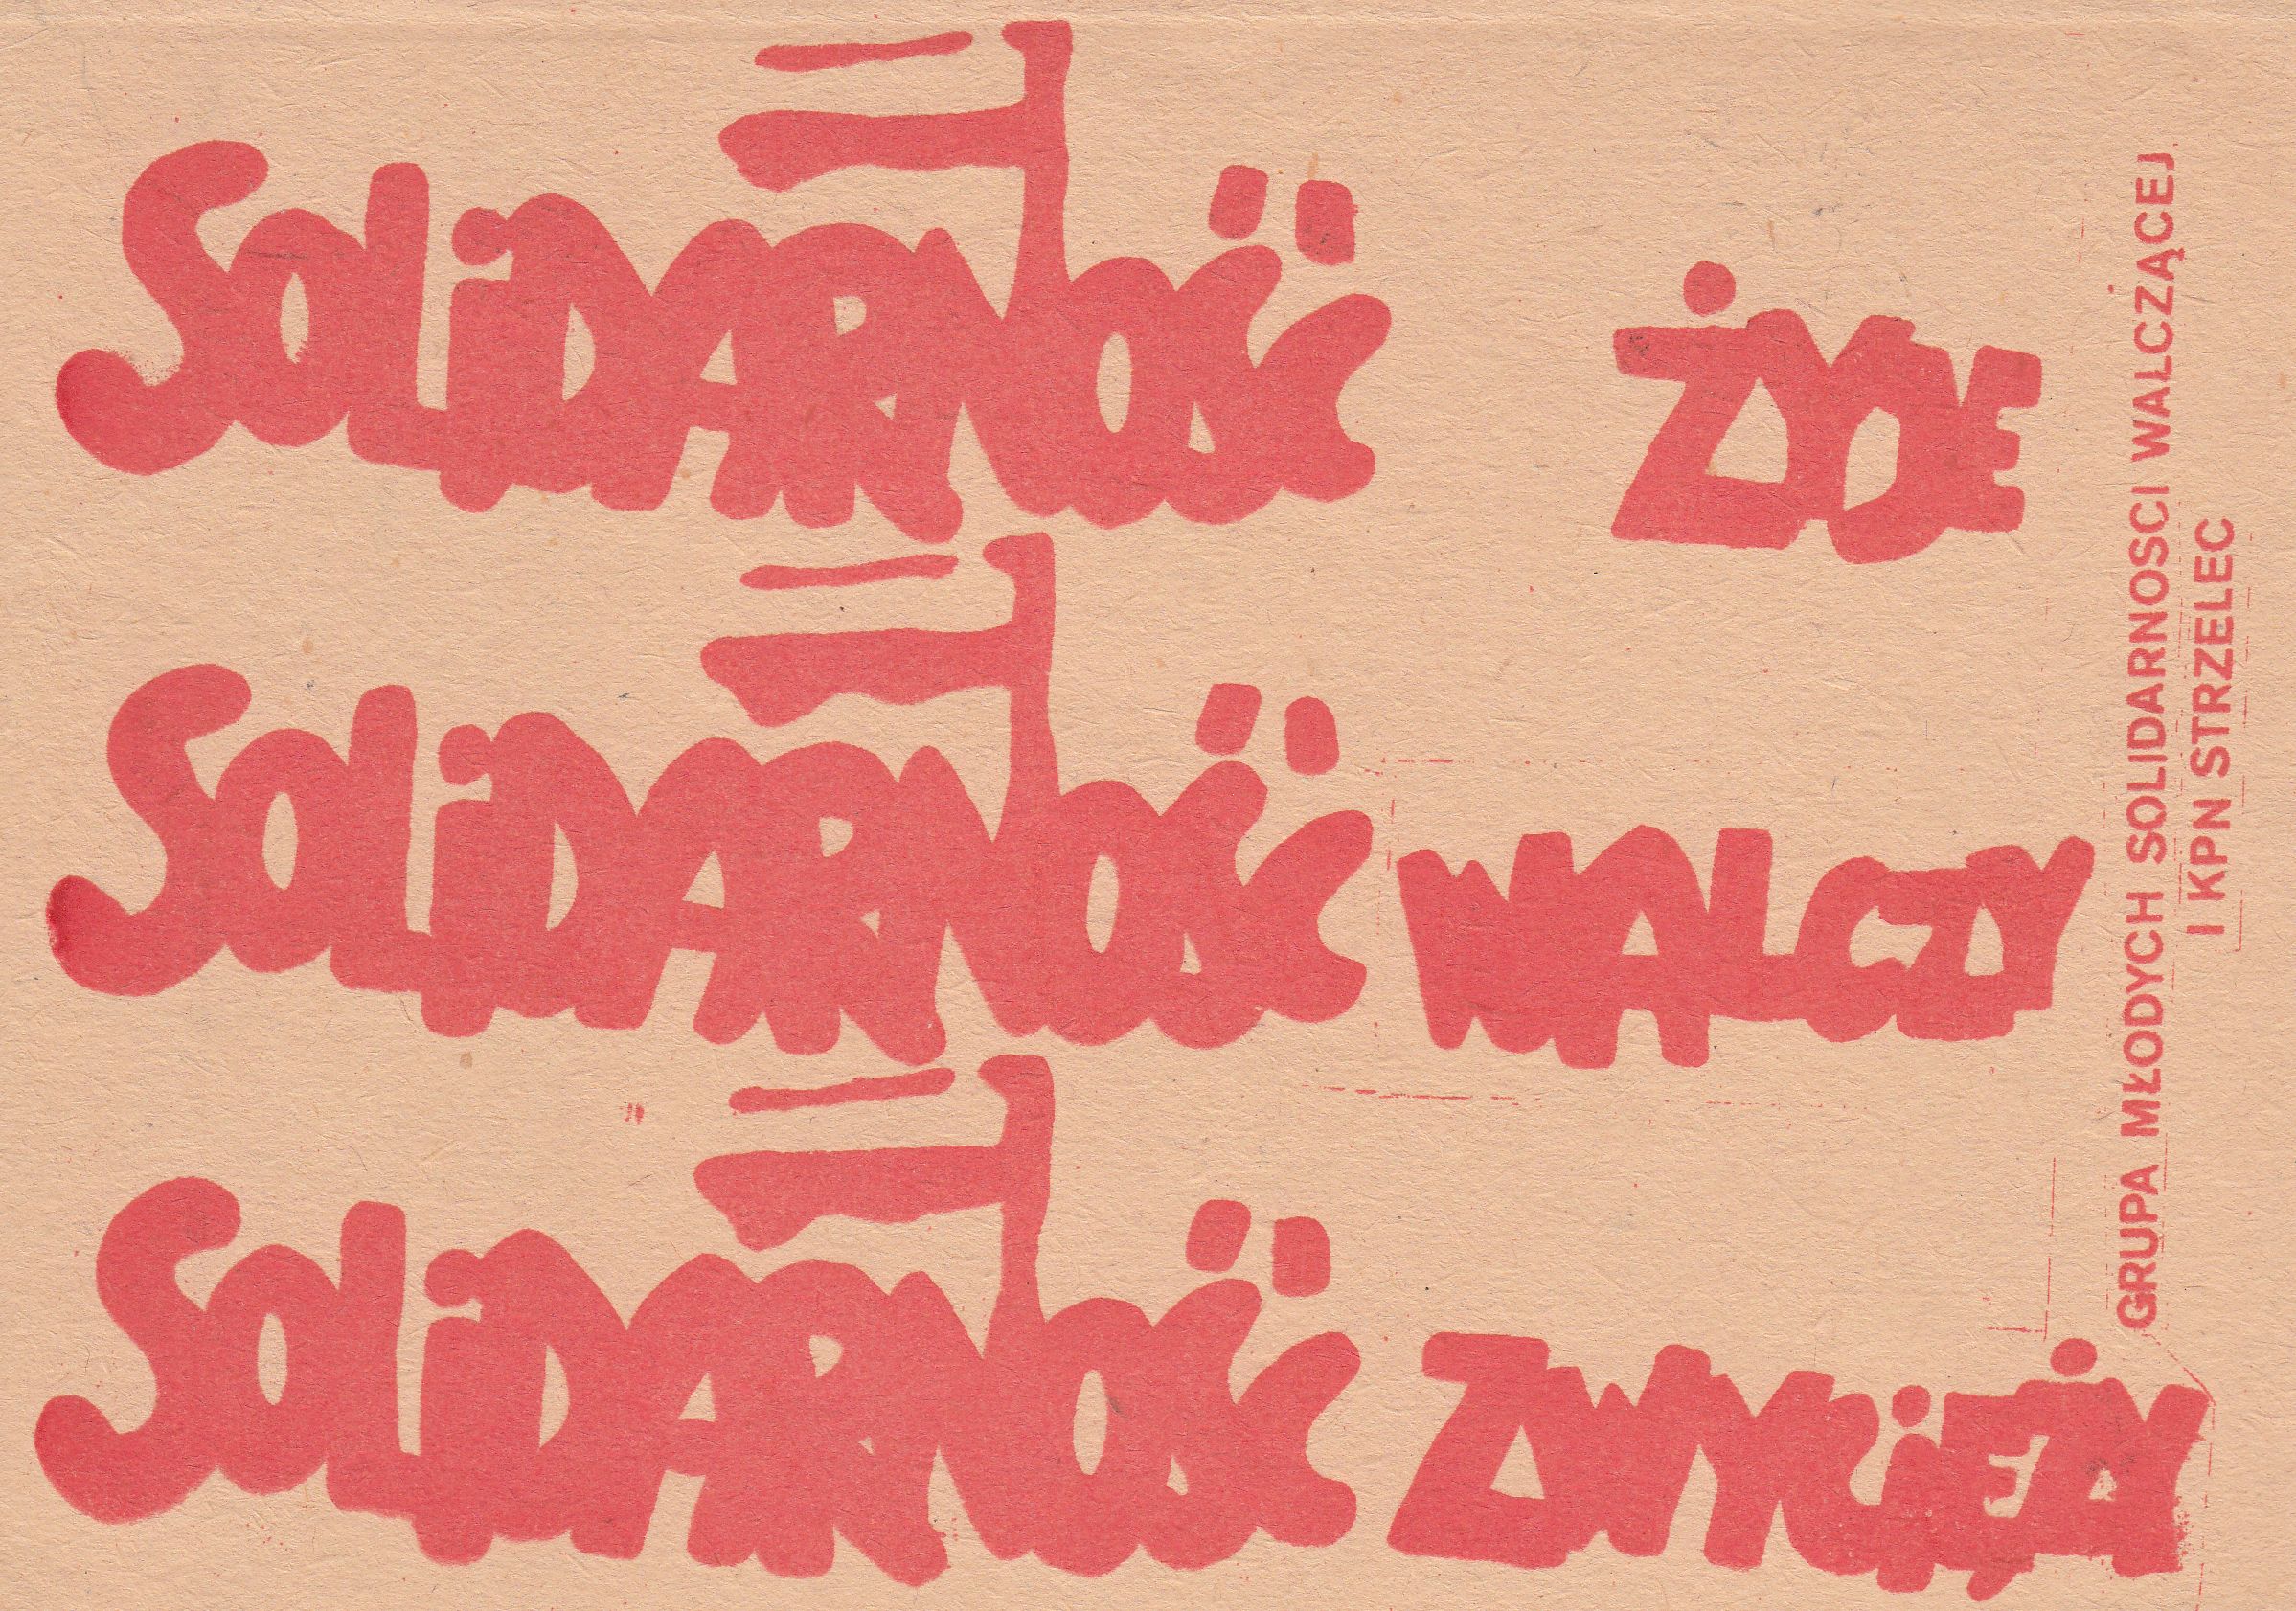 SOLiDARNOŚĆ ŻYJE
SOLiDARNOŚĆ WALCZY
SOLiDARNOŚĆ ZWYCiĘŻY
GRUPA MŁODYCH SOLIDARNOSCI WALCZĄCEJ
I KPN STRZELEC